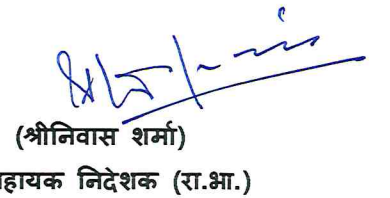 (श्रीनिवास शर्मा)
हायक निदेशक (रा.भा.)